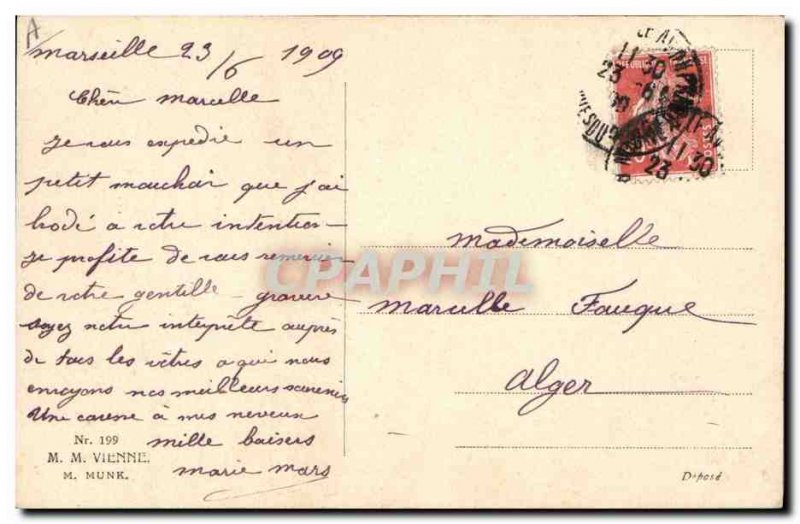 A
Marseille 23/6 1909
Chère Marcelle
Je vous expédie un
petit mouchoir que j'ai
brodé a votre intention
Je profite de vous remercier
de votre gentille gravure
soyez notre interprète auprès
de tous les vôtres a qui nous
envoyons nos meilleurs souvenirs
Une caresse à mes neveux
mille baisers
Marie Mars
Nr. 199
M. M. VIENNE.
M. MUNK.
11 30
23
POSTES
11 30
23
CPAPHIL
Mademoiselle
Marcelle Fauque
Alger
Déposé